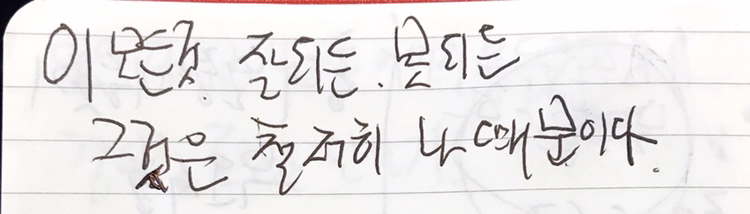 이 모든것. 잘되든. 못되든
그것은 철저히 나 때문이다.